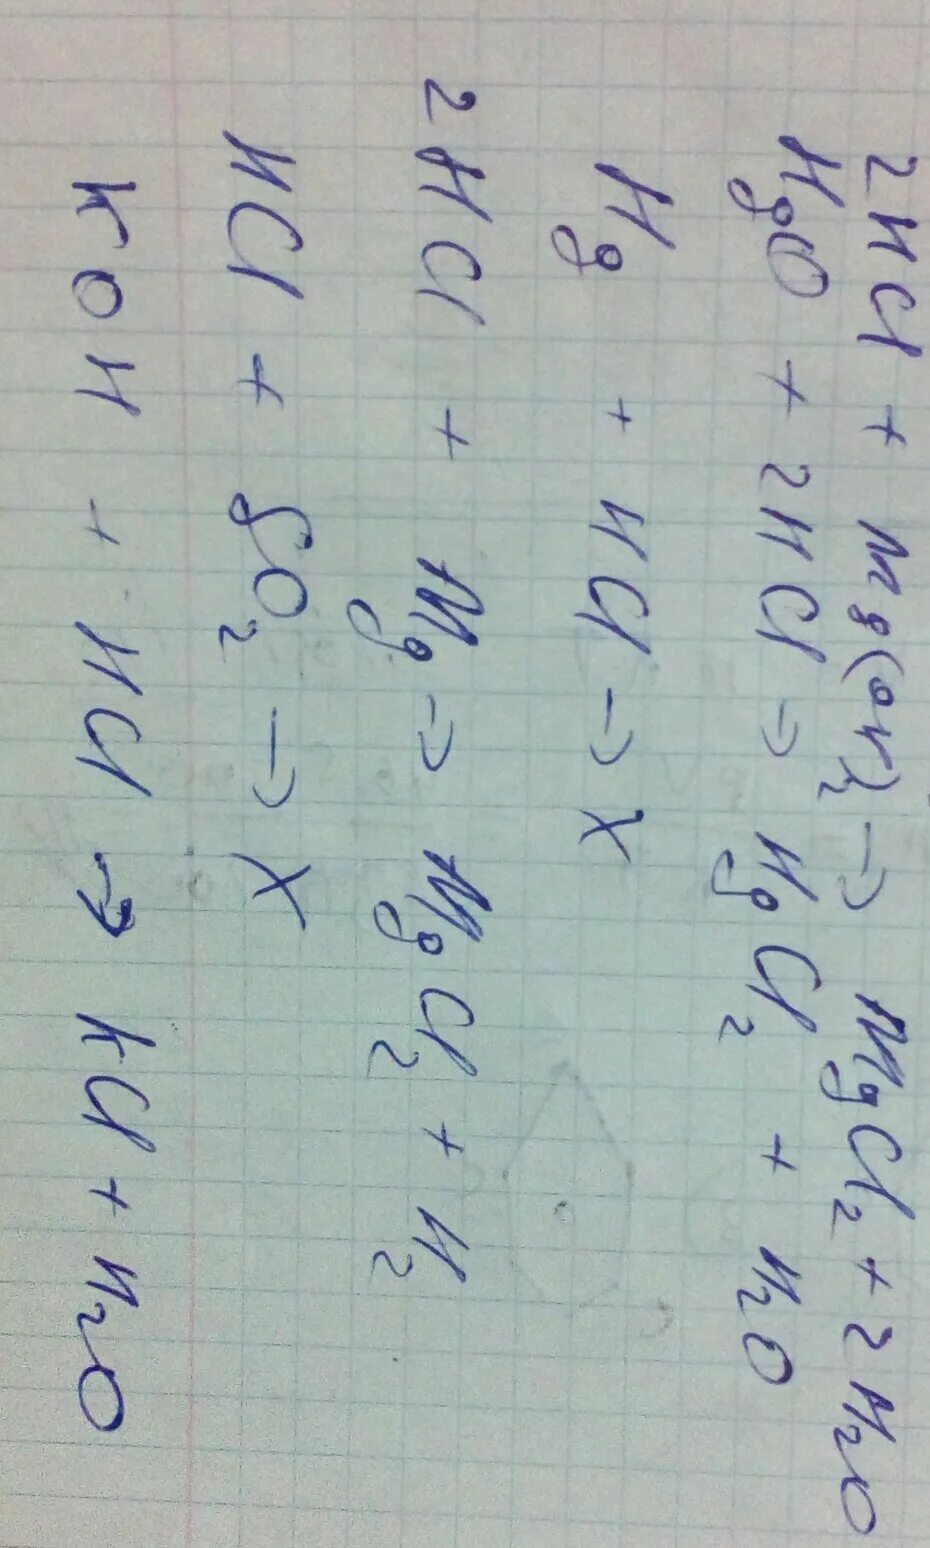 2HCl + Mg(OH)₂ → MgCl₂ + 2H₂O
HgO + 2HCl → HgCl₂ + H₂O
Hg + HCl → X
2HCl + Mg → MgCl₂ + H₂
HCl + SO₂ → X
KOH + HCl → KCl + H₂O